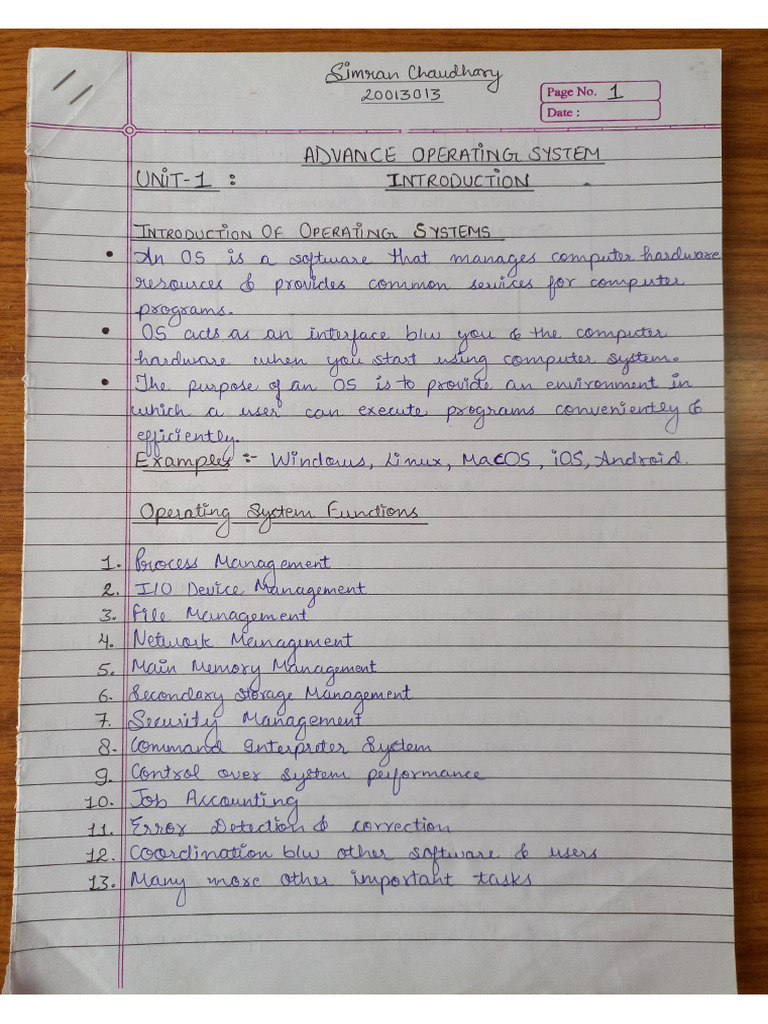 Simran Chaudhary
20013013
Page No. 1
Date :
ADVANCE OPERATING SYSTEM
UNIT-1 : INTRODUCTION
INTRODUCTION OF OPERATING SYSTEMS
• An OS is a software that manages computer hardware
resources & provides common services for computer
programs.
• OS acts as an interface b/w you & the computer
hardware when you start using computer system.
• The purpose of an OS is to provide an environment in
which a user can execute programs conveniently &
efficiently.
Examples :- Windows, Linux, MacOS, iOS, Android.
Operating System Functions
1. Process Management
2. I/O Device Management
3. File Management
4. Network Management
5. Main Memory Management
6. Secondary Storage Management
7. Security Management
8. Command Interpreter System
9. Control over system performance
10. Job Accounting
11. Error Detection & correction
12. Coordination b/w other software & users
13. Many more other important tasks